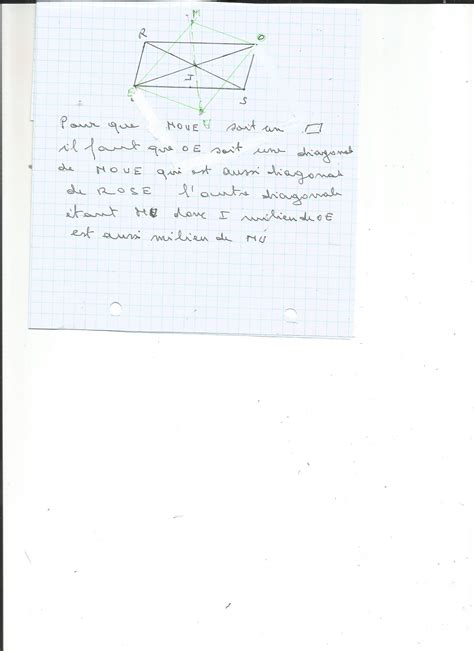 M
R
O
I
E
S
U
Pour que MOUE soit un
il faut que OE soit une diagonal
de MOUE qui est aussi diagonal
de ROSE l'autre diagonale
étant MU donc I milieu de OE
est aussi milieu de MU